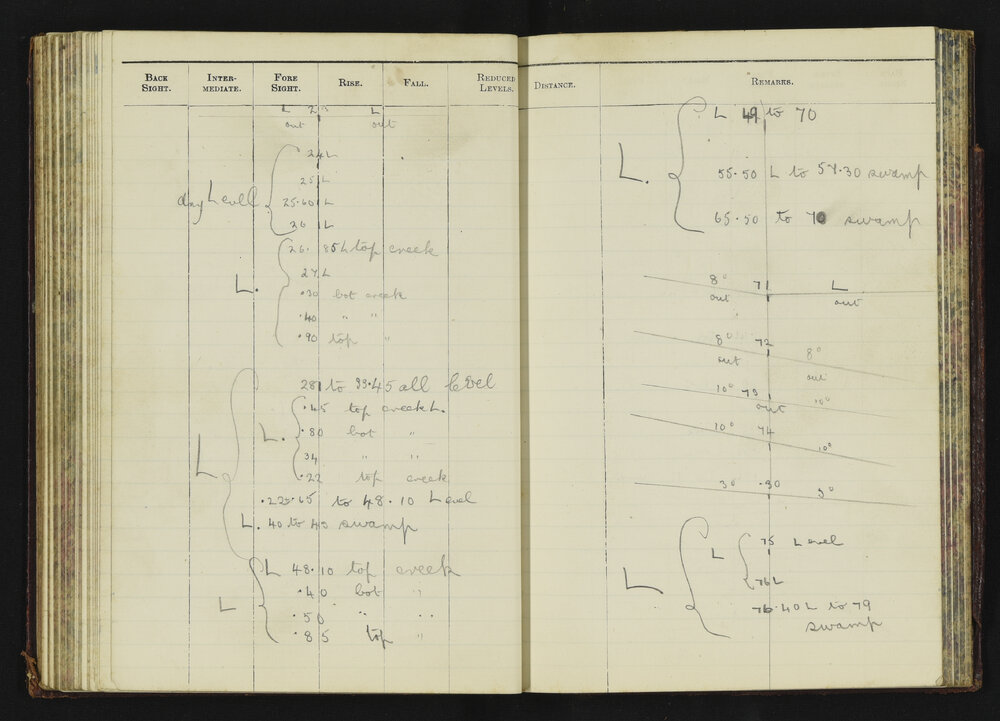 BACK SIGHT. INTER-MEDIATE. FORE SIGHT. RISE. FALL. REDUCED LEVELS.
L 23 L
out out
24 L
25 L
Level 25.60 L
30 L
26. 85 L top creek
27 L
L. .30 bot creek
.40 " "
.90 top "
28 to 33.45 all level
.45 top creek L.
L. .80 bot "
34 " "
L .22 top creek
.22.65 to 48.10 Level
L. 40 to 45 swamp
L 48.10 top creek
.40 bot "
L .50 " "
.85 top "
DISTANCE. REMARKS.
L 49 to 70
L. 55.50 L to 57.30 swamp
65.50 to 70 swamp
8° 71 L
out out
8° 72 8°
out out
10° 73 10°
out
10° 74 10°
3° .30 3°
75 Level
L
L 76 L
76.40 L to 79
swamp